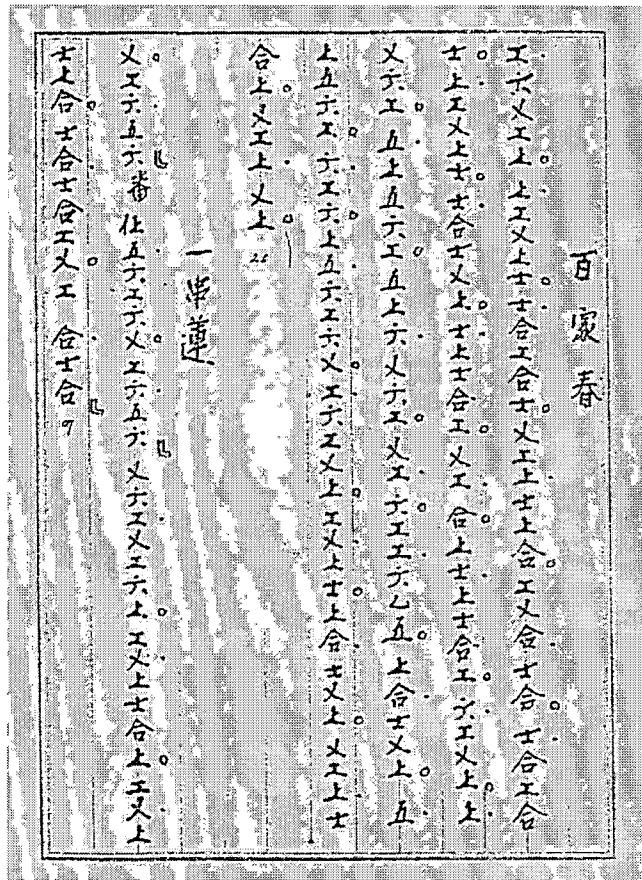 百家春
工六㐅工上 上工㐅上士士合工合士㐅工上士上合 工㐅合 士合 士合工合
士上工㐅上士 士合士㐅上 士上士合工 㐅工 合上士上士合工 六工㐅上 上
㐅六工 五上五六工五上六㐅六工 㐅工六工工六乙五 上合士㐅上 五
上五六工 六工六上五六工六㐅工六工㐅上 工㐅上士上合士㐅上 㐅工上士
合上 㐅工上㐅上
一串蓮
㐅工六五六 畨 仩五六工六㐅工六五六 㐅六工㐅工六上 工㐅上士合上工㐅上
士上合 士合士合工㐅工 合士合